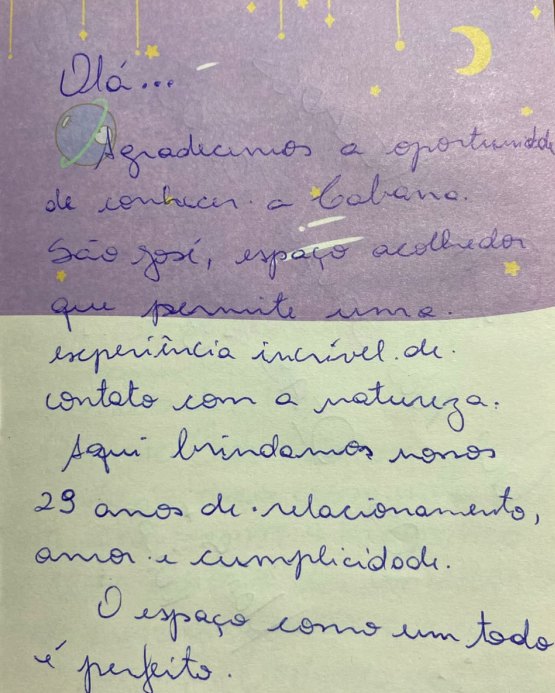 Olá...
Agradecemos a oportunidade
de conhecer a Cabana
São José, espaço acolhedor
que permite uma
experiência incrível de
contato com a natureza.
Aqui brindamos nossos
29 anos de relacionamento,
amor e cumplicidade.
O espaço como um todo
é perfeito.